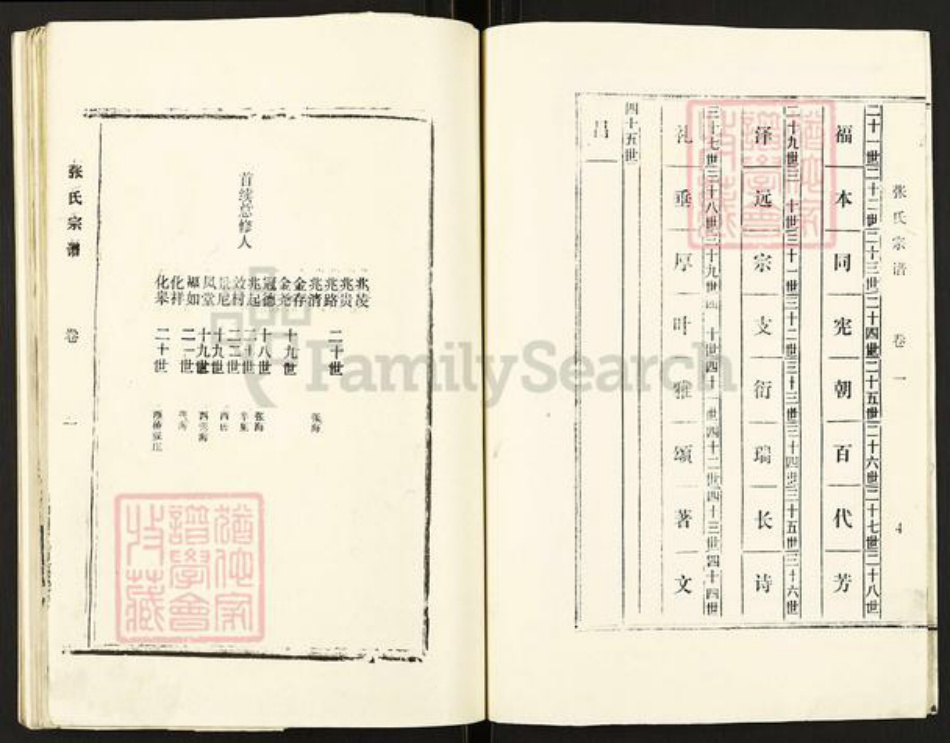 张氏宗谱 卷一 4
二十一世 二十二世 二十三世 二十四世 二十五世 二十六世 二十七世 二十八世
福 本 同 宪 朝 百 代 芳
二十九世 三十世 三十一世 三十二世 三十三世 三十四世 三十五世 三十六世
泽 远 宗 支 衍 瑞 长 诗
三十七世 三十八世 三十九世 四十世 四十一世 四十二世 四十三世 四十四世
礼 垂 厚 叶 雅 颂 著 文
四十五世
昌
首续总修人
兆凌
兆贵
兆路 二十世
兆清 张海
金存
金尧 十九世
冠德 十八世 张海
兆起 二十世
效村 二二世
十九世
凤堂 十九世
如 二一世
化祥
化举 二十世
张氏宗谱 卷一
猶他家譜學會收藏
猶他家譜學會收藏
FamilySearch